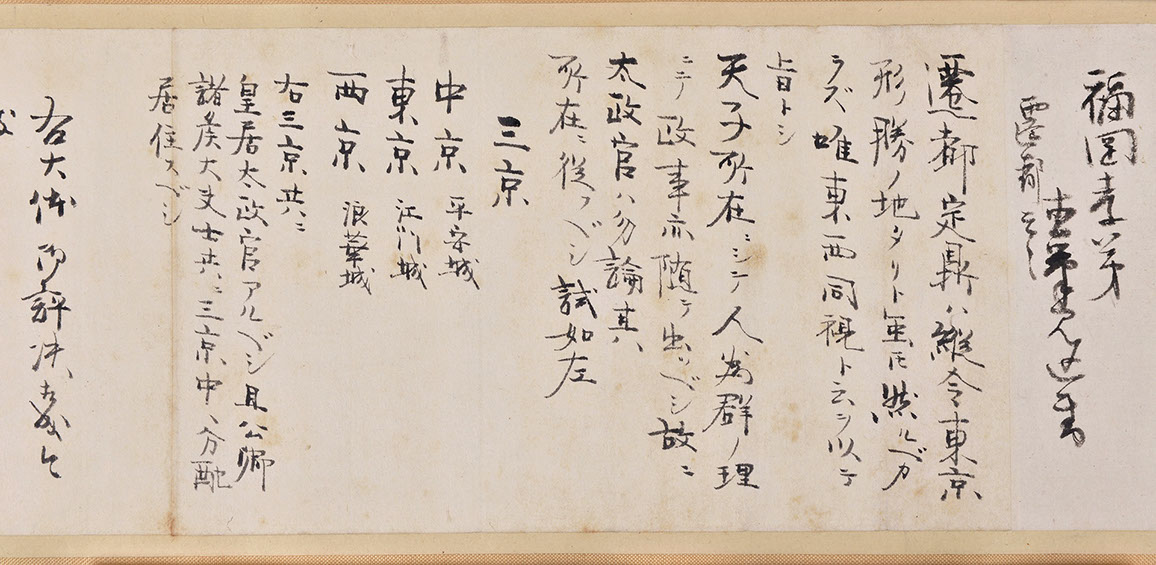 福岡孝弟
遷都
遷都定鼎ハ縦令東京
形勝ノ地タリト雖モ然ルベカ
ラズ唯東西同視ト云ヲ以テ
上旨トシ
天子所在ニシテ人為群ノ理
ニテ政事亦随テ出ツベシ故ニ
太政官ハ勿論其
所在ニ従フベシ試如左
三京
中京 平安城
東京 江戸城
西京 浪華城
右三京共ニ
皇居太政官アルベシ且公卿
諸矦大夫士共ニ三京中ヘ分配
居住スベシ
右大体御評決